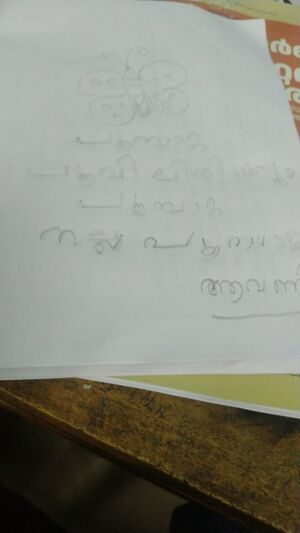 പൂമ്പാറ്റ
പൂവിലിരിക്കും
പൂമ്പാറ്റ
നല്ല പൂമ്പാറ്റ
ആവണി